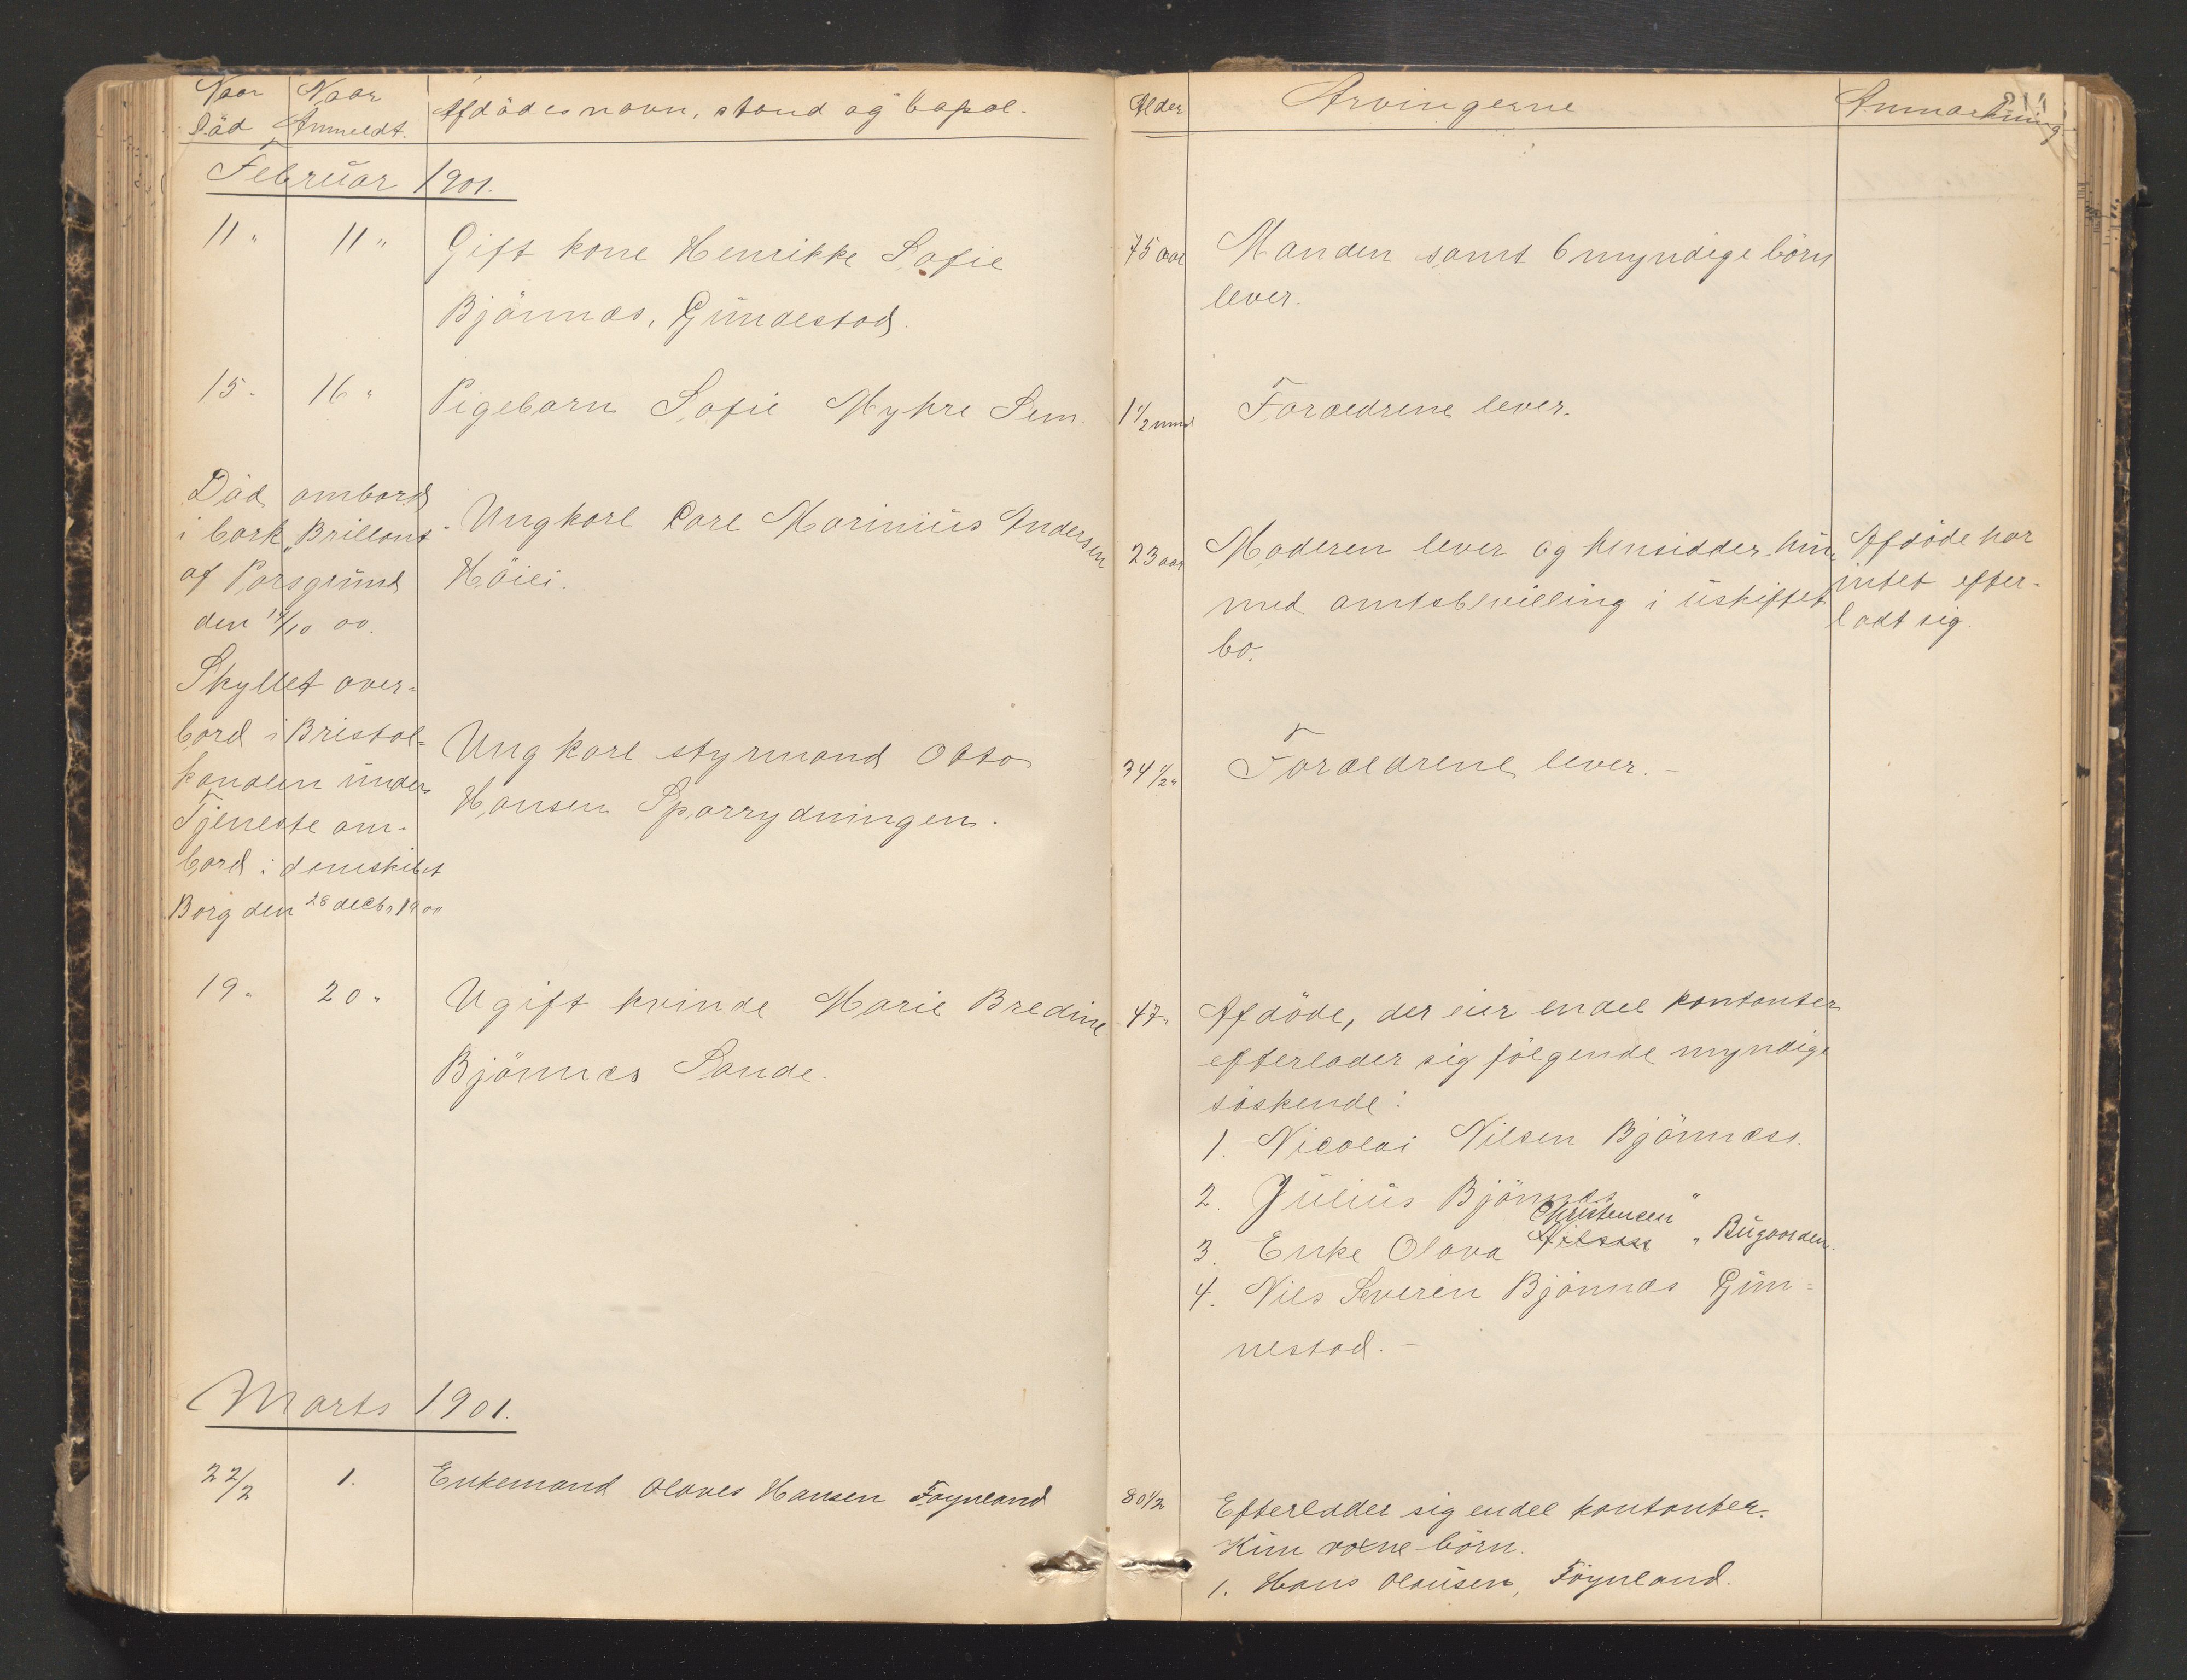 Naar Död
Naar Anmeldt.
Afdödes navn, stand og bopæl.
Alder
Arvingerne
Anmærkning
Februar 1901.
11 " 11 " Gift kone Henrikke Sofie
Bjönnæs, Gunnestad.
75 aar Manden samt 6 myndige börn
lever.
15 " 16 " Pigebarn Sofie Myhre Sem.
1 1/2 mnd Forældrene lever.
Död ombord
i bark "Brillant"
af Porsgrund
den 14/10 00.
Ungkarl Carl Marinius Andersen
Höiei.
23 aar Moderen lever og hensidder hun
med amtsbevilling i uskiftet
bo.
Afdöde har
intet efter-
ladt sig.
Skyllet over-
bord i Bristol-
kanalen under
Tjeneste om-
bord i damskibet
Borg den 28 decbr 1900
Ungkarl styrmand Otto
Hansen Sparrydningen.
34 1/2 " Forældrene lever. -
19 " 20 " Ugift kvinde Marie Bredine
Bjönnæs Sande.
47 " Afdöde, der eier endel kontanter
efterlader sig fölgende myndige
söskende:
1. Nicolai Nilsen Bjönnæss.
2. Julius Bjönnæs "
Christensen
3. Enke Olava Nilsen " Bugaarden.
4. Nils Severin Bjönnæs Gun-
nestad. -
Marts 1901.
22/2 1. Enkemand Olaves Hansen Föynland
80 1/2 Efterlader sig endel kontanter.
Kun voxne börn.
1. Hans Olausen, Föynland.